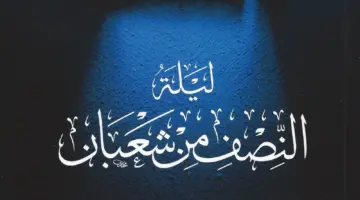 لَيْلَةُ
النِّصْفِ مِنْ شَعْبَان